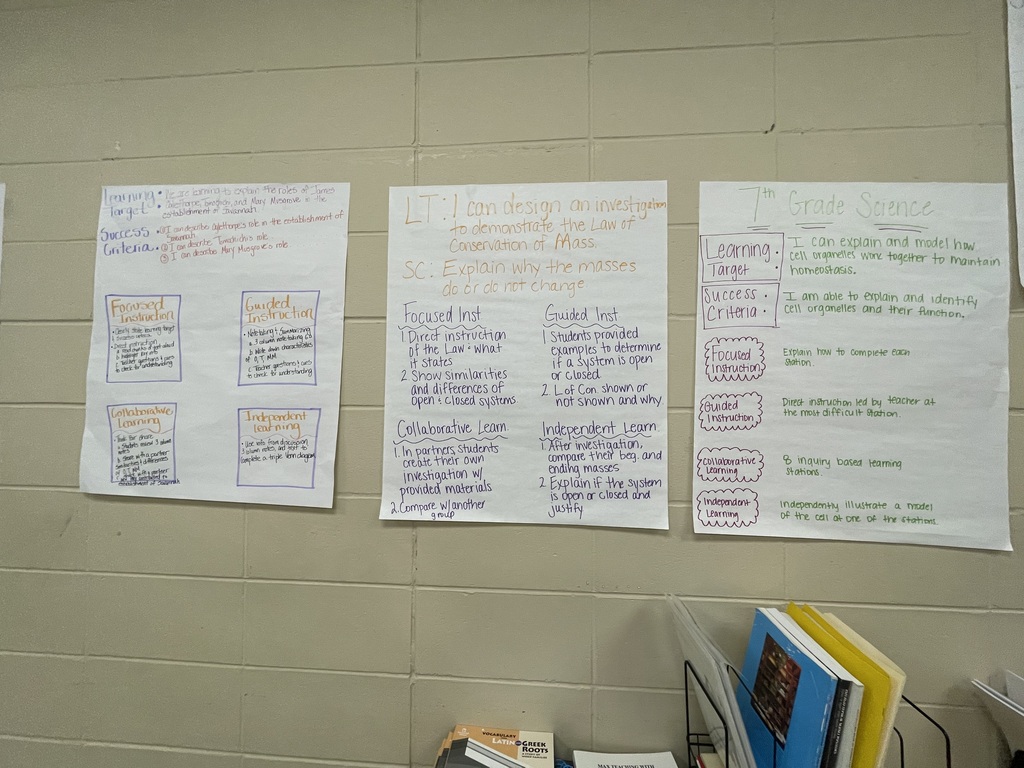 Learning Target:
We are learning to explain the roles of James
Oglethorpe, Tomochichi, and Mary Musgrove in the
establishment of Savannah.
Success Criteria:
① I can describe Oglethorpe's role in the establishment of
Savannah.
② I can describe Tomochichi's role
③ I can describe Mary Musgrove's role
Focused
Instruction
• Clearly state learning target
Direct instruction
Teacher questions & cues
to check for understanding
Guided
Instruction
• Note taking & Summarizing
a. 3 column note taking
b. Write down characteristics
of O, T, MM
c. Teacher questions & cues
to check for understanding
Collaborative
learning
• Think Pair Share
a. Students review 3 column
notes
b. Share with a partner
similarities & differences
establishment of Savannah
Independent
learning
• Use info from discussion,
3 column notes, and text to
complete a triple Venn diagram
LT: I can design an investigation
to demonstrate the Law of
Conservation of Mass.
SC: Explain why the masses
do or do not change
Focused Inst
1 Direct instruction
of the Law + what
it states
2 Show similarities
and differences of
open + closed systems
Guided Inst
1 Students provided
examples to determine
if a system is open
or closed
2 L of Con shown or
not shown and why
Collaborative Learn.
1. In partners, students
create their own
investigation w/
provided materials
2. Compare w/another
group
Independent Learn
1. After investigation,
compare their beg. and
ending masses
2 Explain if the system
is open or closed and
justify
7th Grade Science
Learning Target
I can explain and model how
cell organelles work together to maintain
homeostasis.
Success Criteria
I am able to explain and identify
cell organelles and their function.
Focused
Instruction
Explain how to complete each
station.
Guided
Instruction
Direct instruction led by teacher at
the most difficult station.
Collaborative
Learning
8 inquiry based learning
stations.
Independent
Learning
Independently illustrate a model
of the cell at one of the stations.
VOCABULARY
LATIN
GREEK
ROOTS
MAX TEACHING WITH